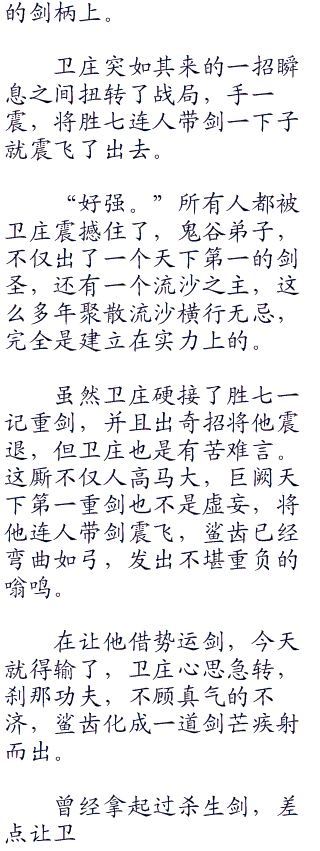 的剑柄上。
卫庄突如其来的一招瞬
息之间扭转了战局，手一
震，将胜七连人带剑一下子
就震飞了出去。
“好强。”所有人都被
卫庄震撼住了，鬼谷弟子，
不仅出了一个天下第一的剑
圣，还有一个流沙之主，这
么多年聚散流沙横行无忌，
完全是建立在实力上的。
虽然卫庄硬接了胜七一
记重剑，并且出奇招将他震
退，但卫庄也是有苦难言。
这厮不仅人高马大，巨阙天
下第一重剑也不是虚妄，将
他连人带剑震飞，鲨齿已经
弯曲如弓，发出不堪重负的
嗡鸣。
在让他借势运剑，今天
就得输了，卫庄心思急转，
刹那功夫，不顾真气的不
济，鲨齿化成一道剑芒疾射
而出。
曾经拿起过杀生剑，差
点让卫